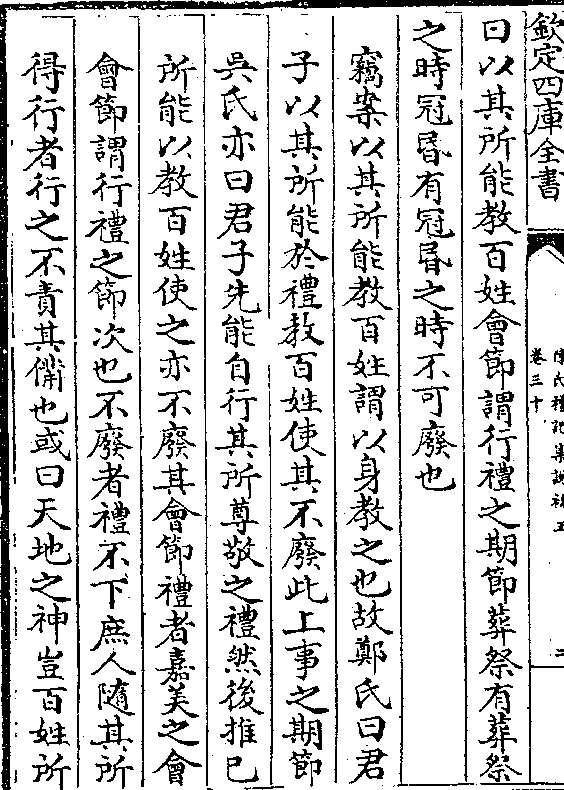 欽定四庫全書
陳氏禮記集說補正
卷三十
二
曰以其所能教百姓會節謂行禮之期節葬祭有葬祭
之時冠昏有冠昏之時不可廢也
竊案以其所能教百姓謂以身教之也故鄭氏曰君
子以其所能於禮教百姓使其不廢此上事之期節
吳氏亦曰君子先能自行其所尊敬之禮然後推已
所能以教百姓使之亦不廢其會節禮者嘉美之會
會節謂行禮之節次也不廢者禮不下庶人隨其所
得行者行之不責其備也或曰天地之神豈百姓所